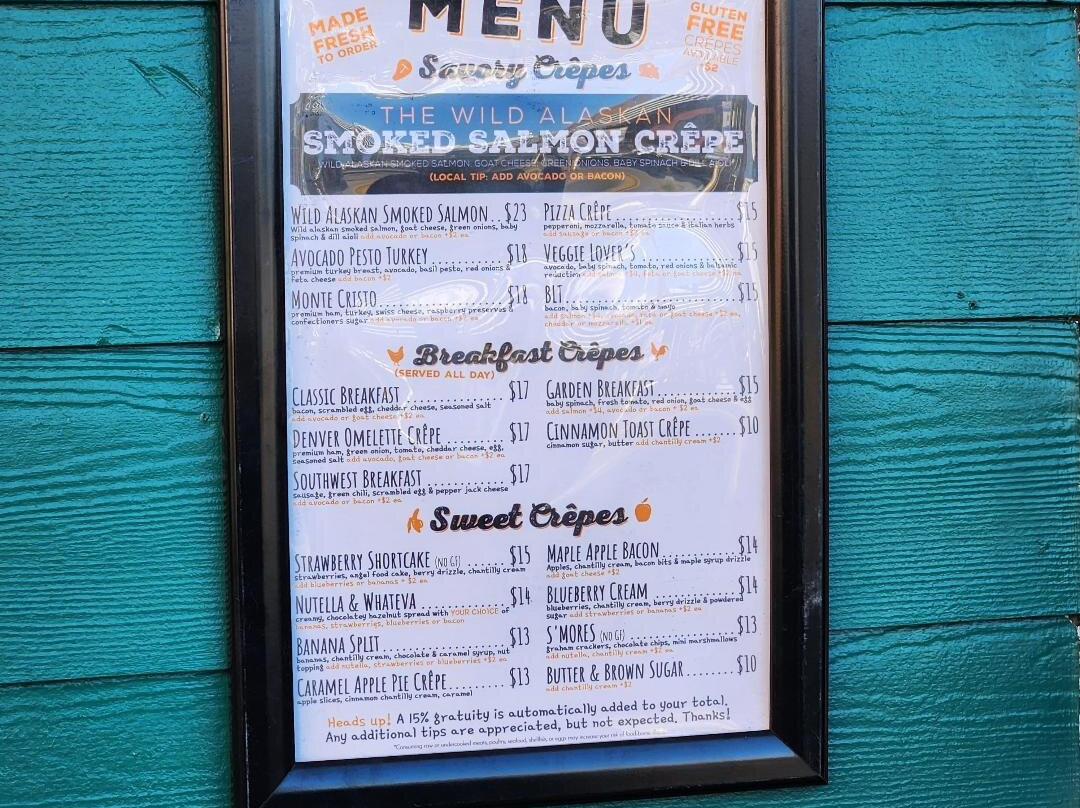 MENU
MADE
FRESH
TO ORDER
GLUTEN
FREE
CRÊPES
AVAILABLE
+$2
Savory Crêpes
THE WILD ALASKAN
SMOKED SALMON CRÊPE
WILD ALASKAN SMOKED SALMON, GOAT CHEESE, GREEN ONIONS, BABY SPINACH & DILL AIOLI
(LOCAL TIP: ADD AVOCADO OR BACON)
WILD ALASKAN SMOKED SALMON..$23
Wild alaskan smoked salmon, goat cheese, green onions, baby
spinach & dill aioli add avocado or bacon +$2 ea
AVOCADO PESTO TURKEY..........$18
premium turkey breast, avocado, basil pesto, red onions &
feta cheese add bacon +$2
MONTE CRISTO..................$18
premium ham, turkey, swiss cheese, raspberry preserves &
confectioners sugar add avocado or bacon +$2 ea
PIZZA CRÊPE..................$15
pepperoni, mozzarella, tomato sauce & italian herbs
add sausage or bacon
VEGGIE LOVER'S...............$15
avocado, baby spinach, tomato, red onions & balsamic
reduction add salmon +$4, feta or goat cheese
BLT..........................$15
bacon, baby spinach, tomato & mayo
add salmon +$4, avocado, feta or goat cheese +$2 ea,
cheddar or mozzarella +$1 ea
Breakfast Crêpes
(SERVED ALL DAY)
CLASSIC BREAKFAST..............$17
bacon, scrambled egg, cheddar cheese, seasoned salt
add avocado or goat cheese +$2 ea
DENVER OMELETTE CRÊPE........$17
premium ham, green onion, tomato, cheddar cheese, egg,
seasoned salt add avocado, goat cheese or bacon +$2 ea
SOUTHWEST BREAKFAST..........$17
sausage, green chili, scrambled egg & pepper jack cheese
add avocado or bacon +$2 ea
GARDEN BREAKFAST............$15
baby spinach, fresh tomato, red onion, goat cheese & egg
add salmon +$4, avocado or bacon + $2 ea
CINNAMON TOAST CRÊPE.......$10
cinnamon sugar, butter add chantilly cream +$2
Sweet Crêpes
STRAWBERRY SHORTCAKE (NO GF)...$15
strawberries, angel food cake, berry drizzle, chantilly cream
add blueberries or bananas + $2 ea
NUTELLA & WHATEVA............$14
creamy, chocolatey hazelnut spread with YOUR CHOICE of
bananas, strawberries, blueberries or bacon
BANANA SPLIT.................$13
bananas, chantilly cream, chocolate & caramel syrup, nut
topping add nutella, strawberries or blueberries +$2 ea
CARAMEL APPLE PIE CRÊPE........$13
apple slices, cinnamon chantilly cream, caramel
MAPLE APPLE BACON............$14
Apples, chantilly cream, bacon bits & maple syrup drizzle
add goat cheese +$2
BLUEBERRY CREAM .............$14
blueberries, chantilly cream, berry drizzle & powdered
sugar add strawberries or bananas +$2 ea
S'MORES (NO GF)................$13
graham crackers, chocolate chips, mini marshmallows
add nutella, chantilly cream +$2 ea
BUTTER & BROWN SUGAR........$10
add chantilly cream +$2
Heads up! A 15% gratuity is automatically added to your total.
Any additional tips are appreciated, but not expected. Thanks!
*Consuming raw or undercooked meats, poultry, seafood, shellfish, or eggs may increase your risk of food borne